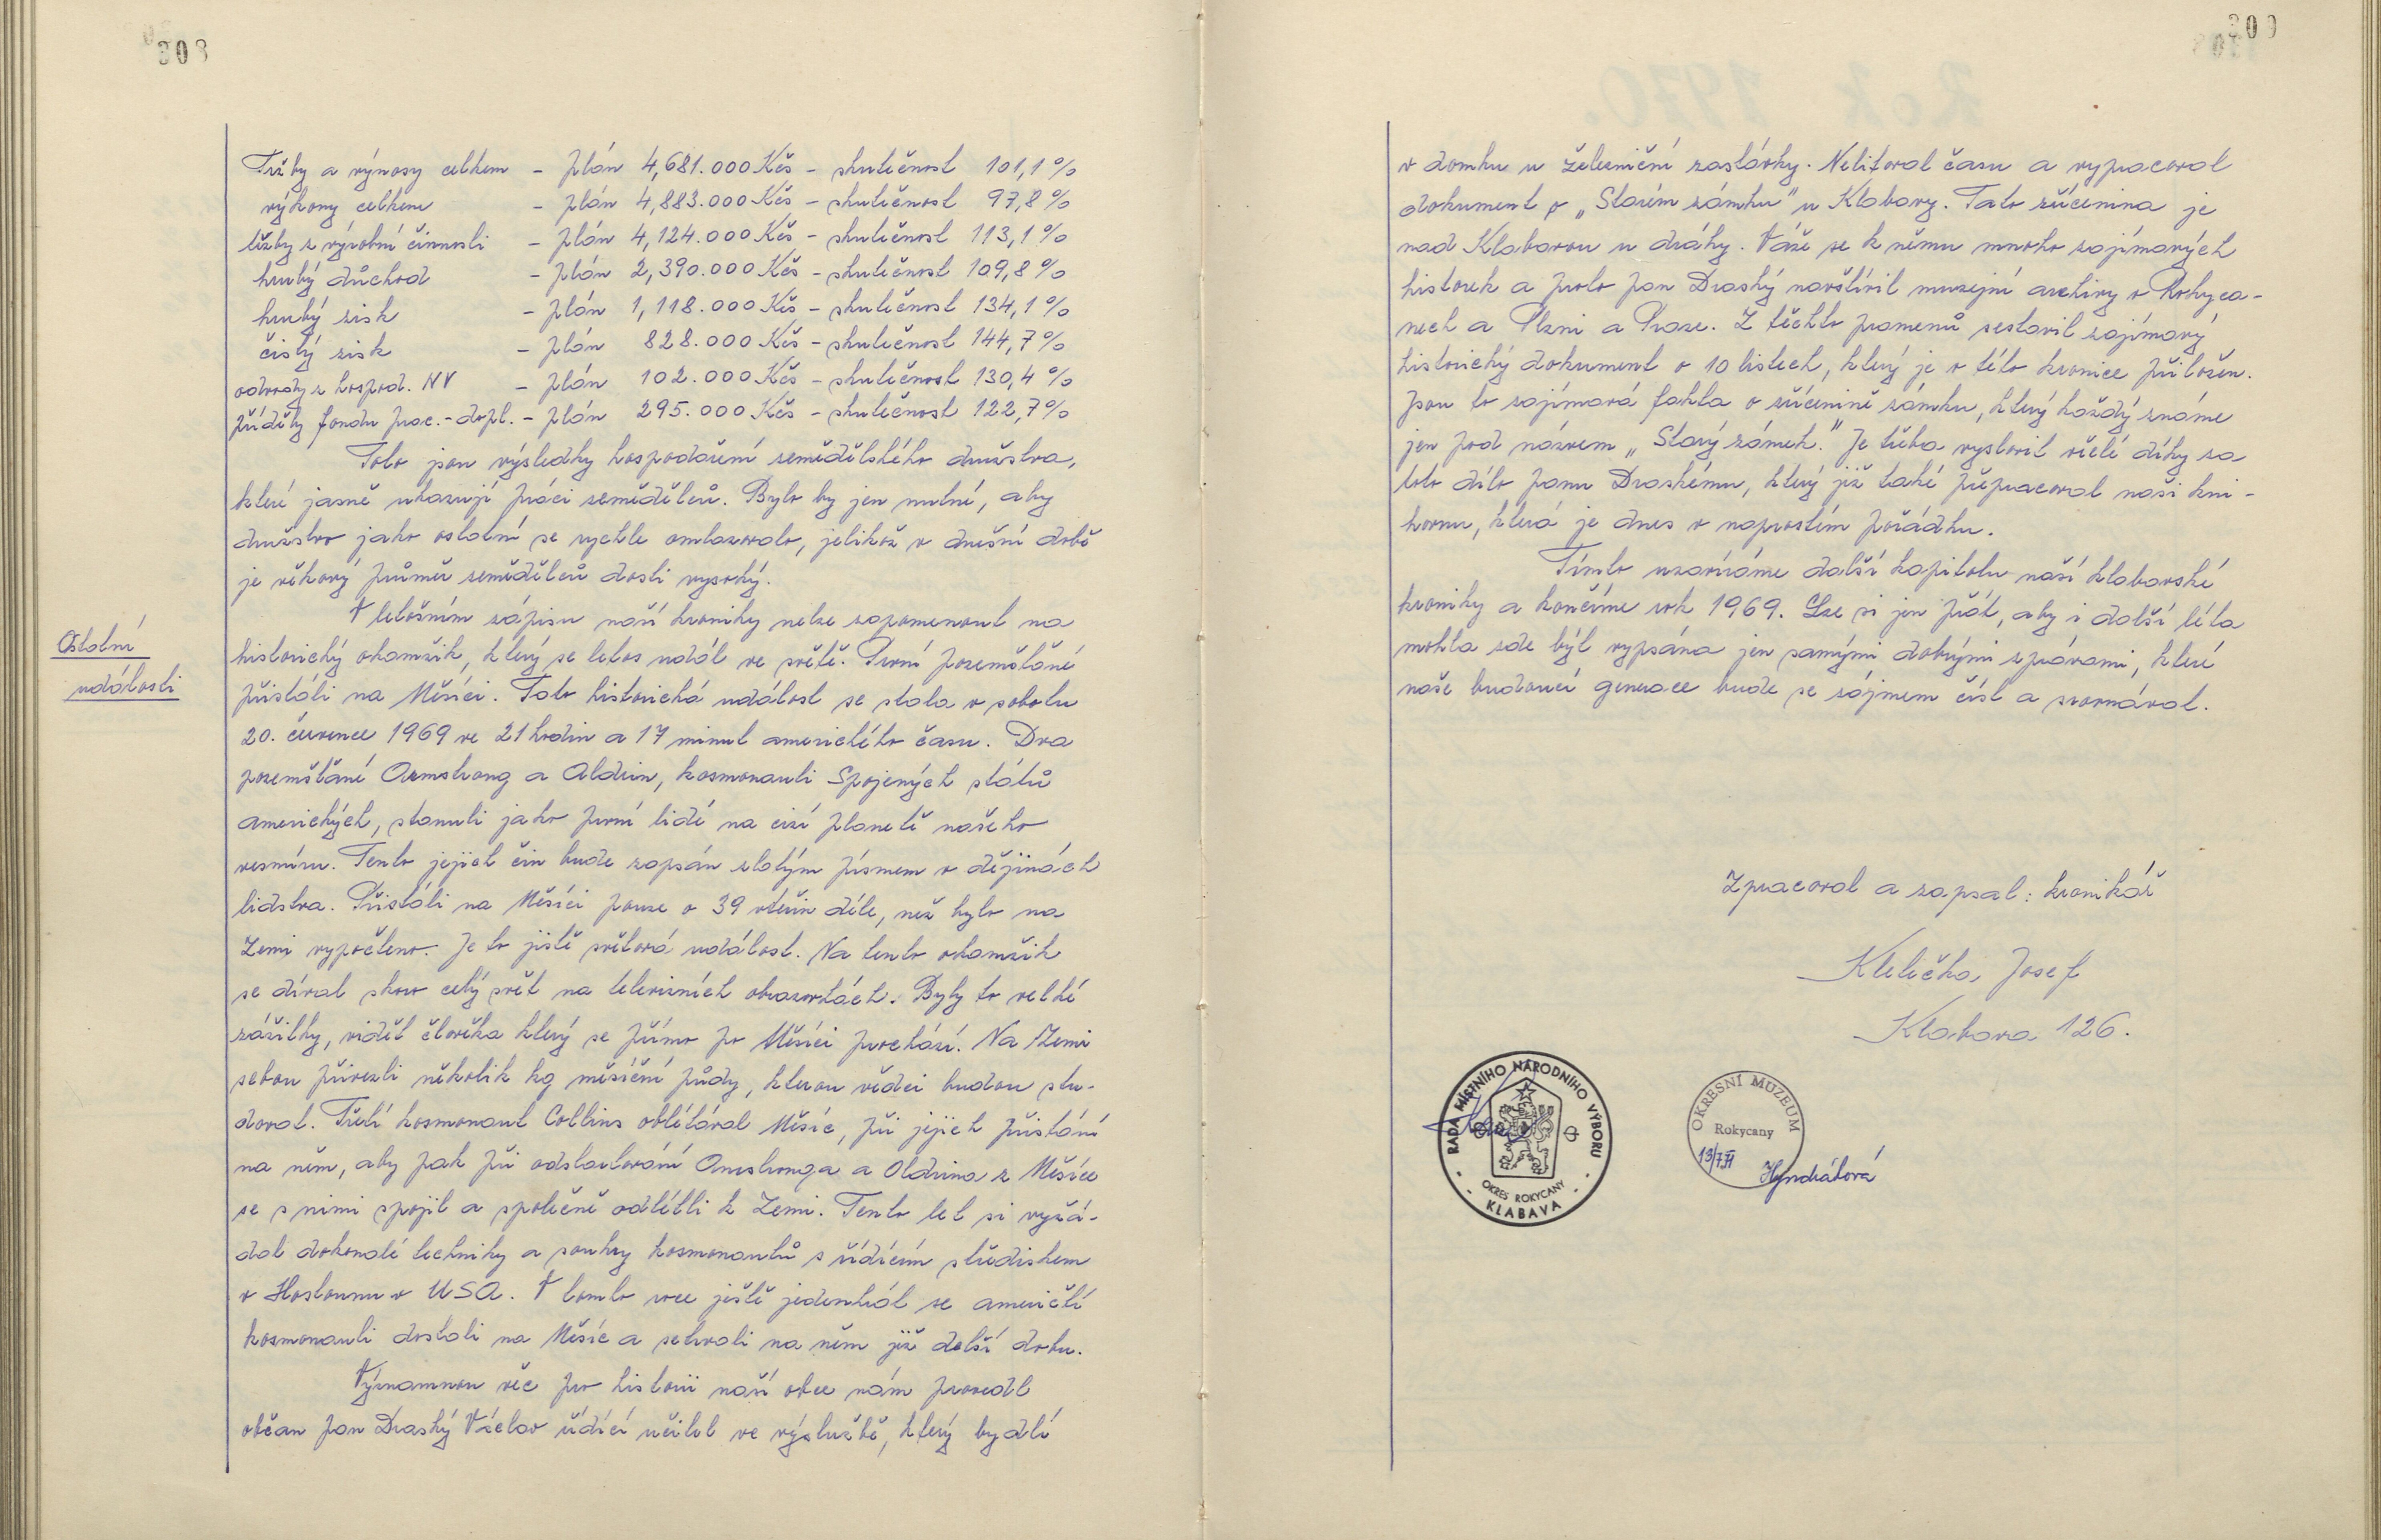 308
Tržby a výnosy celkem - plán 4,681.000 Kčs - skutečnost 101,1 %
výkony celkem - plán 4,883.000 Kčs - skutečnost 97,8 %
tržby z výrobní činnosti - plán 4,124.000 Kčs - skutečnost 113,1 %
hrubý důchod - plán 2,390.000 Kčs - skutečnost 109,8 %
hrubý zisk - plán 1,118.000 Kčs - skutečnost 134,1 %
čistý zisk - plán 828.000 Kčs - skutečnost 144,7 %
odvody z hospod. NV - plán 102.000 Kčs - skutečnost 130,4 %
příděly fondu prac.-dopl. - plán 295.000 Kčs - skutečnost 122,7 %
Toto jsou výsledky hospodaření zemědělského družstva,
které jasně ukazují práci zemědělců. Bylo by jen nutné, aby
družstvo jako ostatní se rychle omlazovalo, jelikož v dnešní době
je věkový průměr zemědělců dosti vysoký.
Ostatní
události
V letošním zápisu naší kroniky nelze zapomenout na
historický okamžik, který se letos udál ve světě. První pozemšťané
přistáli na Měsíci. Tato historická událost se stala v sobotu
20. července 1969 ve 21 hodin a 17 minut amerického času. Dva
pozemšťané Armstrong a Aldrin, kosmonauti Spojených států
amerických, stanuli jako první lidé na cizí planetě našeho
vesmíru. Tento jejich čin bude zapsán zlatým písmem v dějinách
lidstva. Přistáli na Měsíci pouze o 39 vteřin déle, než bylo na
Zemi vypočteno. Je to jistě světová událost. Na tento okamžik
se díval skoro celý svět na televizních obrazovkách. Byly to velké
zážitky, vidět člověka který se přímo po Měsíci prochází. Na Zemi
sebou přivezli několik kg měsíční půdy, kterou vědci budou stu-
dovat. Třetí kosmonaut Collins oblétával Měsíc, při jejich přistání
na něm, aby pak při odstartování Amstronga a Oldrina z Měsíce
se s nimi spojil a společně odlétli k Zemi. Tento let si vyžá-
dal dokonalé techniky a souhry kosmonautů s řídícím střediskem
v Hostounu v USA. V tomto roce ještě jedenkrát se američtí
kosmonauti dostali na Měsíc a setrvali na něm již delší dobu.
Významnou věc pro historii naší obce nám provedl
občan pan Draský Václav řídící učitel ve výslužbě, který bydlí
309
v domku u železniční zastávky. Nelitoval času a vypracoval
dokument o „Starém zámku" u Klabavy. Tato zřícenina je
nad Klabavou u dráhy. Váže se k němu mnoho zajímavých
historek a proto pan Draský navštívil muzejní archivy v Rokyca-
nech a Plzni a Praze. Z těchto pramenů sestavil zajímavý
historický dokument o 10 listech, který je v této kronice přiložen.
Jsou to zajímavá fakta o zřícenině zámku, který každý známe
jen pod názvem „Starý zámek." Je třeba vyslovit vřelé díky za
toto dílo panu Draskému, který již také přepracoval naši kni-
hovnu, která je dnes v naprostém pořádku.
Tímto uzavíráme další kapitolu naší klabavské
kroniky a končíme rok 1969. Lze si jen přát, aby i další léta
mohla zde být vypsána jen samými dobrými zprávami, které
naše budoucí generace bude se zájmem číst a srovnávat.
Zpracoval a zapsal: kronikář
Kletečka Josef
Klabava 126.
RADA MÍSTNÍHO NÁRODNÍHO VÝBORU
OKRES ROKYCANY
KLABAVA
OKRESNÍ MUZEUM
Rokycany
Hyndráková